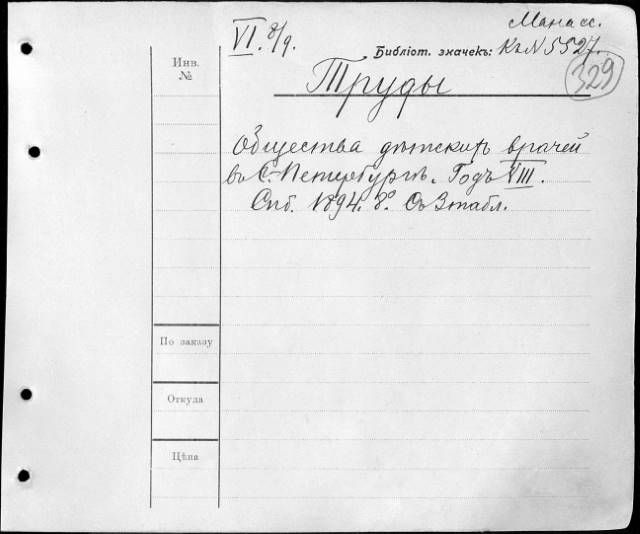 Манасс.
VI. 8/9.
Библіот. значекъ: КъN5527.
Инв.
№
329
Труды
Общества дѣтскихъ врачей
въ С.-Петербургѣ. Годъ VIII.
Спб. 1894. 8° Съ 3 табл.
По заказу
Откуда
Цѣна